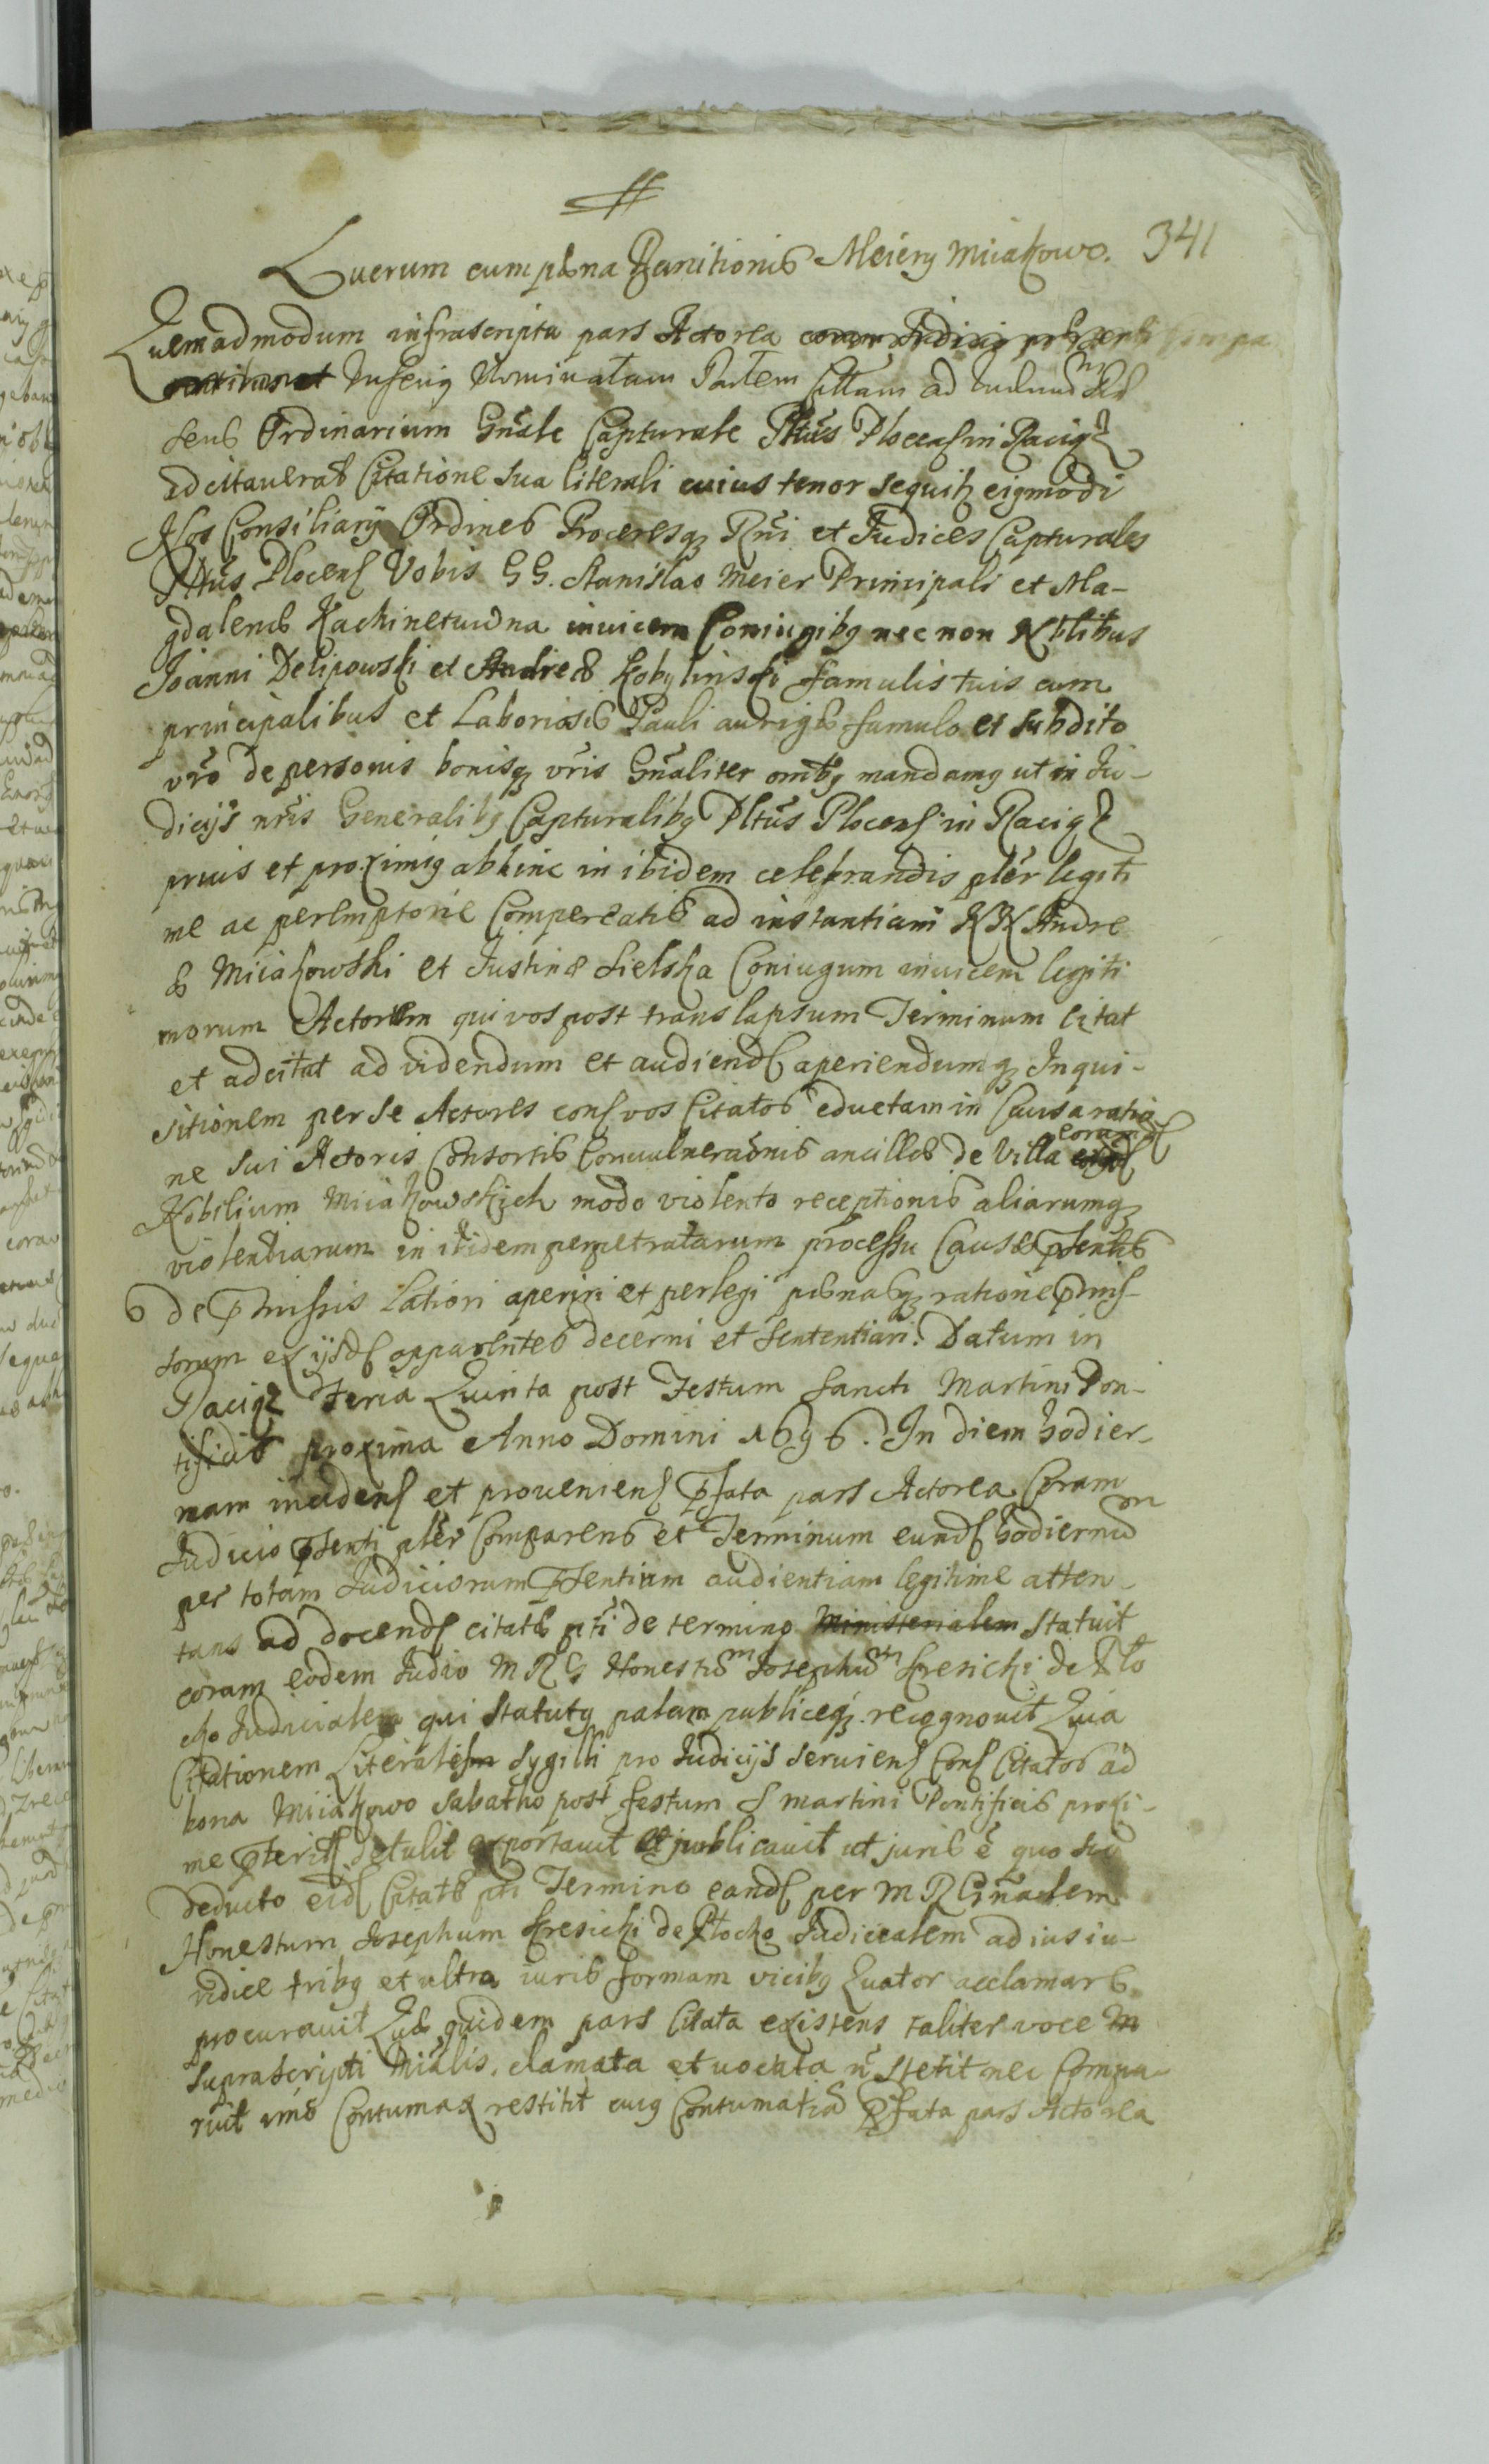 341
Lucrum cum pæna Banitionis Meiery Miiakowo.
Quemadmodum infrascripta pars Actorea coram Judicio
Inferius Nominatam Partem Cittam ad Iudicium
sens Ordinarium Gnale Capturale Pltus Plocen in Raciąz
adcitauerat Citatione sua literali cuius tenor sequit eigmodi
Nos Consiliarÿ Ordines Proceresq Rni et Judices Capturales
Pltus Plocens Vobis GG. Stanislao Meier Principali et Ma-
gdalenæ Kachinetuidna inuicem Coniugibg nec non Nblibus
Joanni Delipowski et Andreæ Kobylinski famulis tuis cum
principalibus et Laboriosis Pauli aurigæ famulo et subdito
vro de personis bonisq vris Gnaliter ombg mandamg ut in Ju-
dicÿs nris Generalibg Capturalibg Pltus Plocens in Raciąz
prius et proximig abhinc in ibidem celebrandis pler legiti
me ac peremptorie Compereatis ad instantiam NN Andre
æ Miiakowski et Justinæ Sielska Coniugum inuicem legiti
morum Actorum qui vos post translapsum Terminum citat
et adcitat ad videndum et audiend aperiendumq Inqui-
sitionem per se Actores cons vos Citatos eductam in Causa ratio
ne sui Actoris Consortis Conuulnerãonis ancillæ de Villa eorund
Nobilium Miiakowskich modo violento receptionis aliarumq
violentiarum in ibidem perpetratarum processu Causæ pñtis
de pmissis Latiori aperiri et perlegi pænasq ratione pmis-
sorum ex ijsd apparentes decerni et sententiari. Datum in
Raciąz Feria Quinta post Festum Sancti Martini Pon-
tificis proxima Anno Domini 1696. In diem hodier-
nam incidens et proueniens pfata pars Actorea Coram
Judicio psenti pler Comparens et Terminum eund hodiernum
per totam Judiciorum psentium audientiam legitime atten-
tans ad docend citatæ pti de termino Ministerialem statuit
coram eodem Judio M R G Honestum Josephum Kresicki de Plo
cko Judicialem qui statutg palam publiceq recognouit Quia
Citationem Literalem sygilli pro Judicÿs seruiens Cons Citatos ad
bona Miiakowo Sabatho post festum S Martini Pontificis proxi-
me pterit detulit exportauit et publicauit ut juris e quo sic
deducto eid Citatæ pti Termino eand per M R Gnalem
Honestum Josephum Kresicki de Plocko Judicialem ad ius iu-
ridice tribg et ultra iuris formam vicibg Quator acclamare
procurauit Quæ quidem pars Citata existens taliter voce
suprascripti Mialis. clamata et uocata n stetit nec Compa-
ruit imo Contumax restitit cuig Contumatia pfata pars Actorea